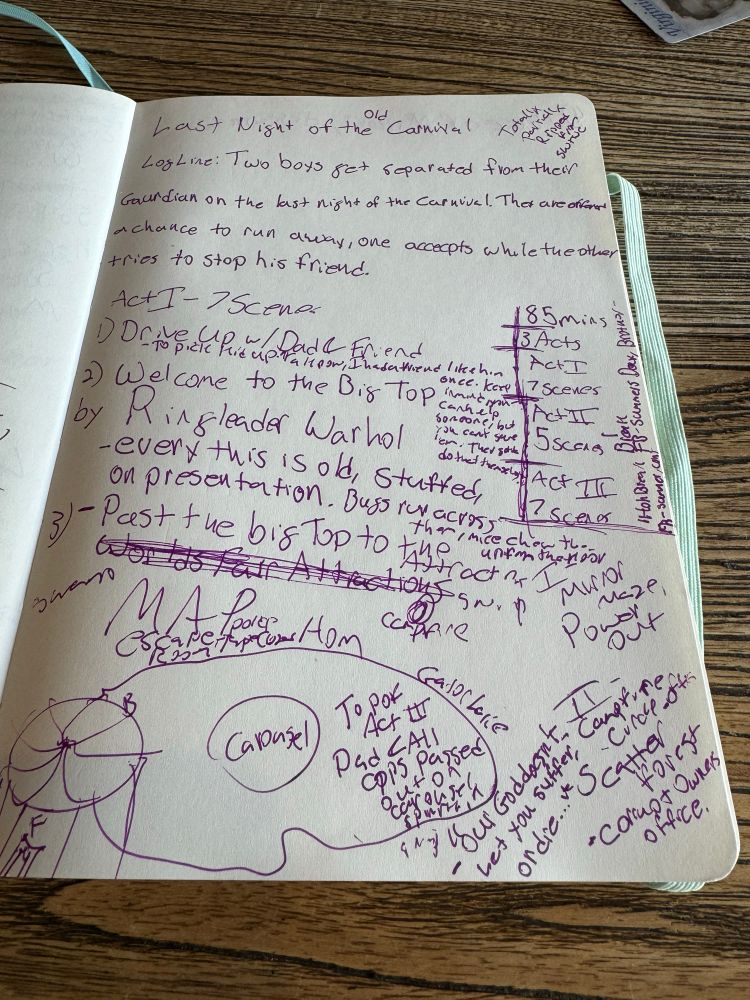 Last Night of the Old Carnival
Totally
Partially
Ripped
from
LogLine: Two boys get separated from their
Gaurdian on the last night of the Carnival. They are offered
a chance to run away, one accepts while the other
tries to stop his friend.
Act I - 7 Scenes
1) Drive Up w/ Dad & Friend
- To pick this up
I had a friend like him
once. keep
in mind you
can help
someone, but
you can't save
'em. They gotta
do that themselves
2) Welcome to the Big Top
by Ringleader Warhol
- every this is old, stuffed,
on presentation. Bugs run across
them, mice chew th..
3) - Past the big Top to the
Worlds Fair Attractions
Attractions
85 mins
3 Acts
Act I
7 Scenes
Act II
5 scenes
Act III
7 Scenes
I
Mirror
Maze,
Power
Out
MAP
escape
Room
B
Carousel
Gator Lake
To por
Act III
Dad CAll
cops passed
out on
carousel
F
II
- Campfire
- Circle - of
Scatter
Forest
- Corrupt Owners
office.
- Our God doesn't
let you suffer,
or die...